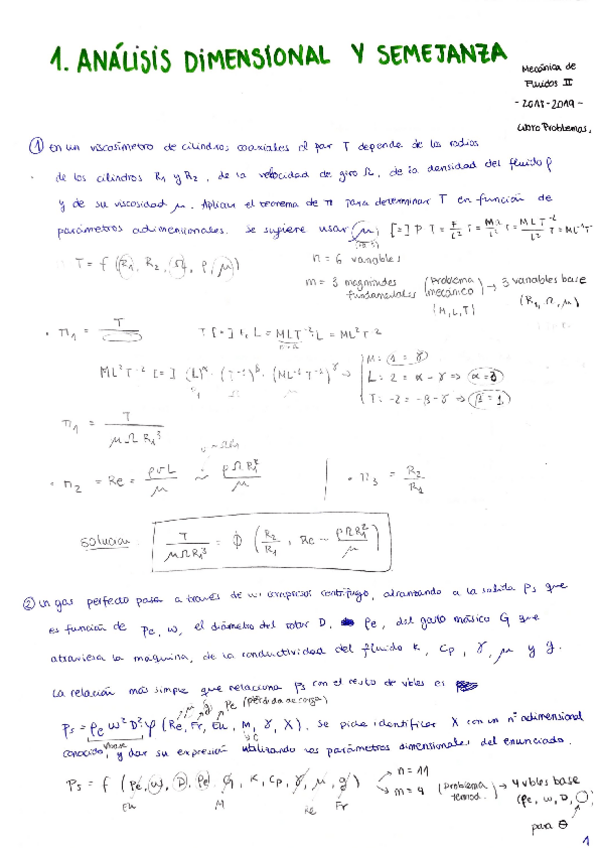 1. ANÁLISIS DIMENSIONAL Y SEMEJANZA
Mecánica de
Fluidos II
- 2018-2019 -
Libro Problemas.
① En un viscosímetro de cilindros coaxiales el par T depende de los radios
de los cilindros R₁ y R₂, de la velocidad de giro Ω, de la densidad del fluido ρ
y de su viscosidad μ. Aplicar el teorema de π para determinar T en función de
parámetros adimensionales. Se sugiere usar μ
T = f (R₁, R₂, Ω, ρ, μ)
n = 6 variables
m = 3 magnitudes fundamentales (Problema mecánico) → 3 variables base
(M, L, T) (R₁, Ω, μ)
• π₁ = T
T [=] F·L = MLT⁻²·L = ML²T⁻²
ML²T⁻² [=] (L)^α · (T⁻¹)^β · (ML⁻¹T⁻¹)^γ →
M: 1 = γ
L: 2 = α - γ ⇒ α = 3
T: -2 = -β - γ → β = 1
π₁ = T / μ Ω R₁³
• π₂ = Re = ρ v L / μ ∼ ρ Ω R₁² / μ
• π₃ = R₂ / R₁
Solución: T / μΩR₁³ = ϕ (R₂/R₁, Re ∼ ρΩR₁²/μ)
② Un gas perfecto pasa a través de un compresor centrífugo, alcanzando a la salida ps que
es función de pe, ω, el diámetro del rotor D, ρe, del gasto másico G que
atraviesa la maquina, de la conductividad del fluido k, cp, γ, μ y g.
La relación más simple que relaciona ps con el resto de vbles es
μ g Pe (pérdida de carga)
Ps = ρe ω² D² φ (Re, Fr, Eu, M, γ, X). Se pide identificar X con un nº adimensional
conocido, y dar su expresión utilizando los parámetros dimensionales del enunciado.
Ps = f (ρe, ω, D, Pe, G, k, cp, γ, μ, g)
n = 11
m = 4 (Problema termod.) → 4 vbles base
(ρe, ω, D, )
Eu M Re Fr
para θ
1